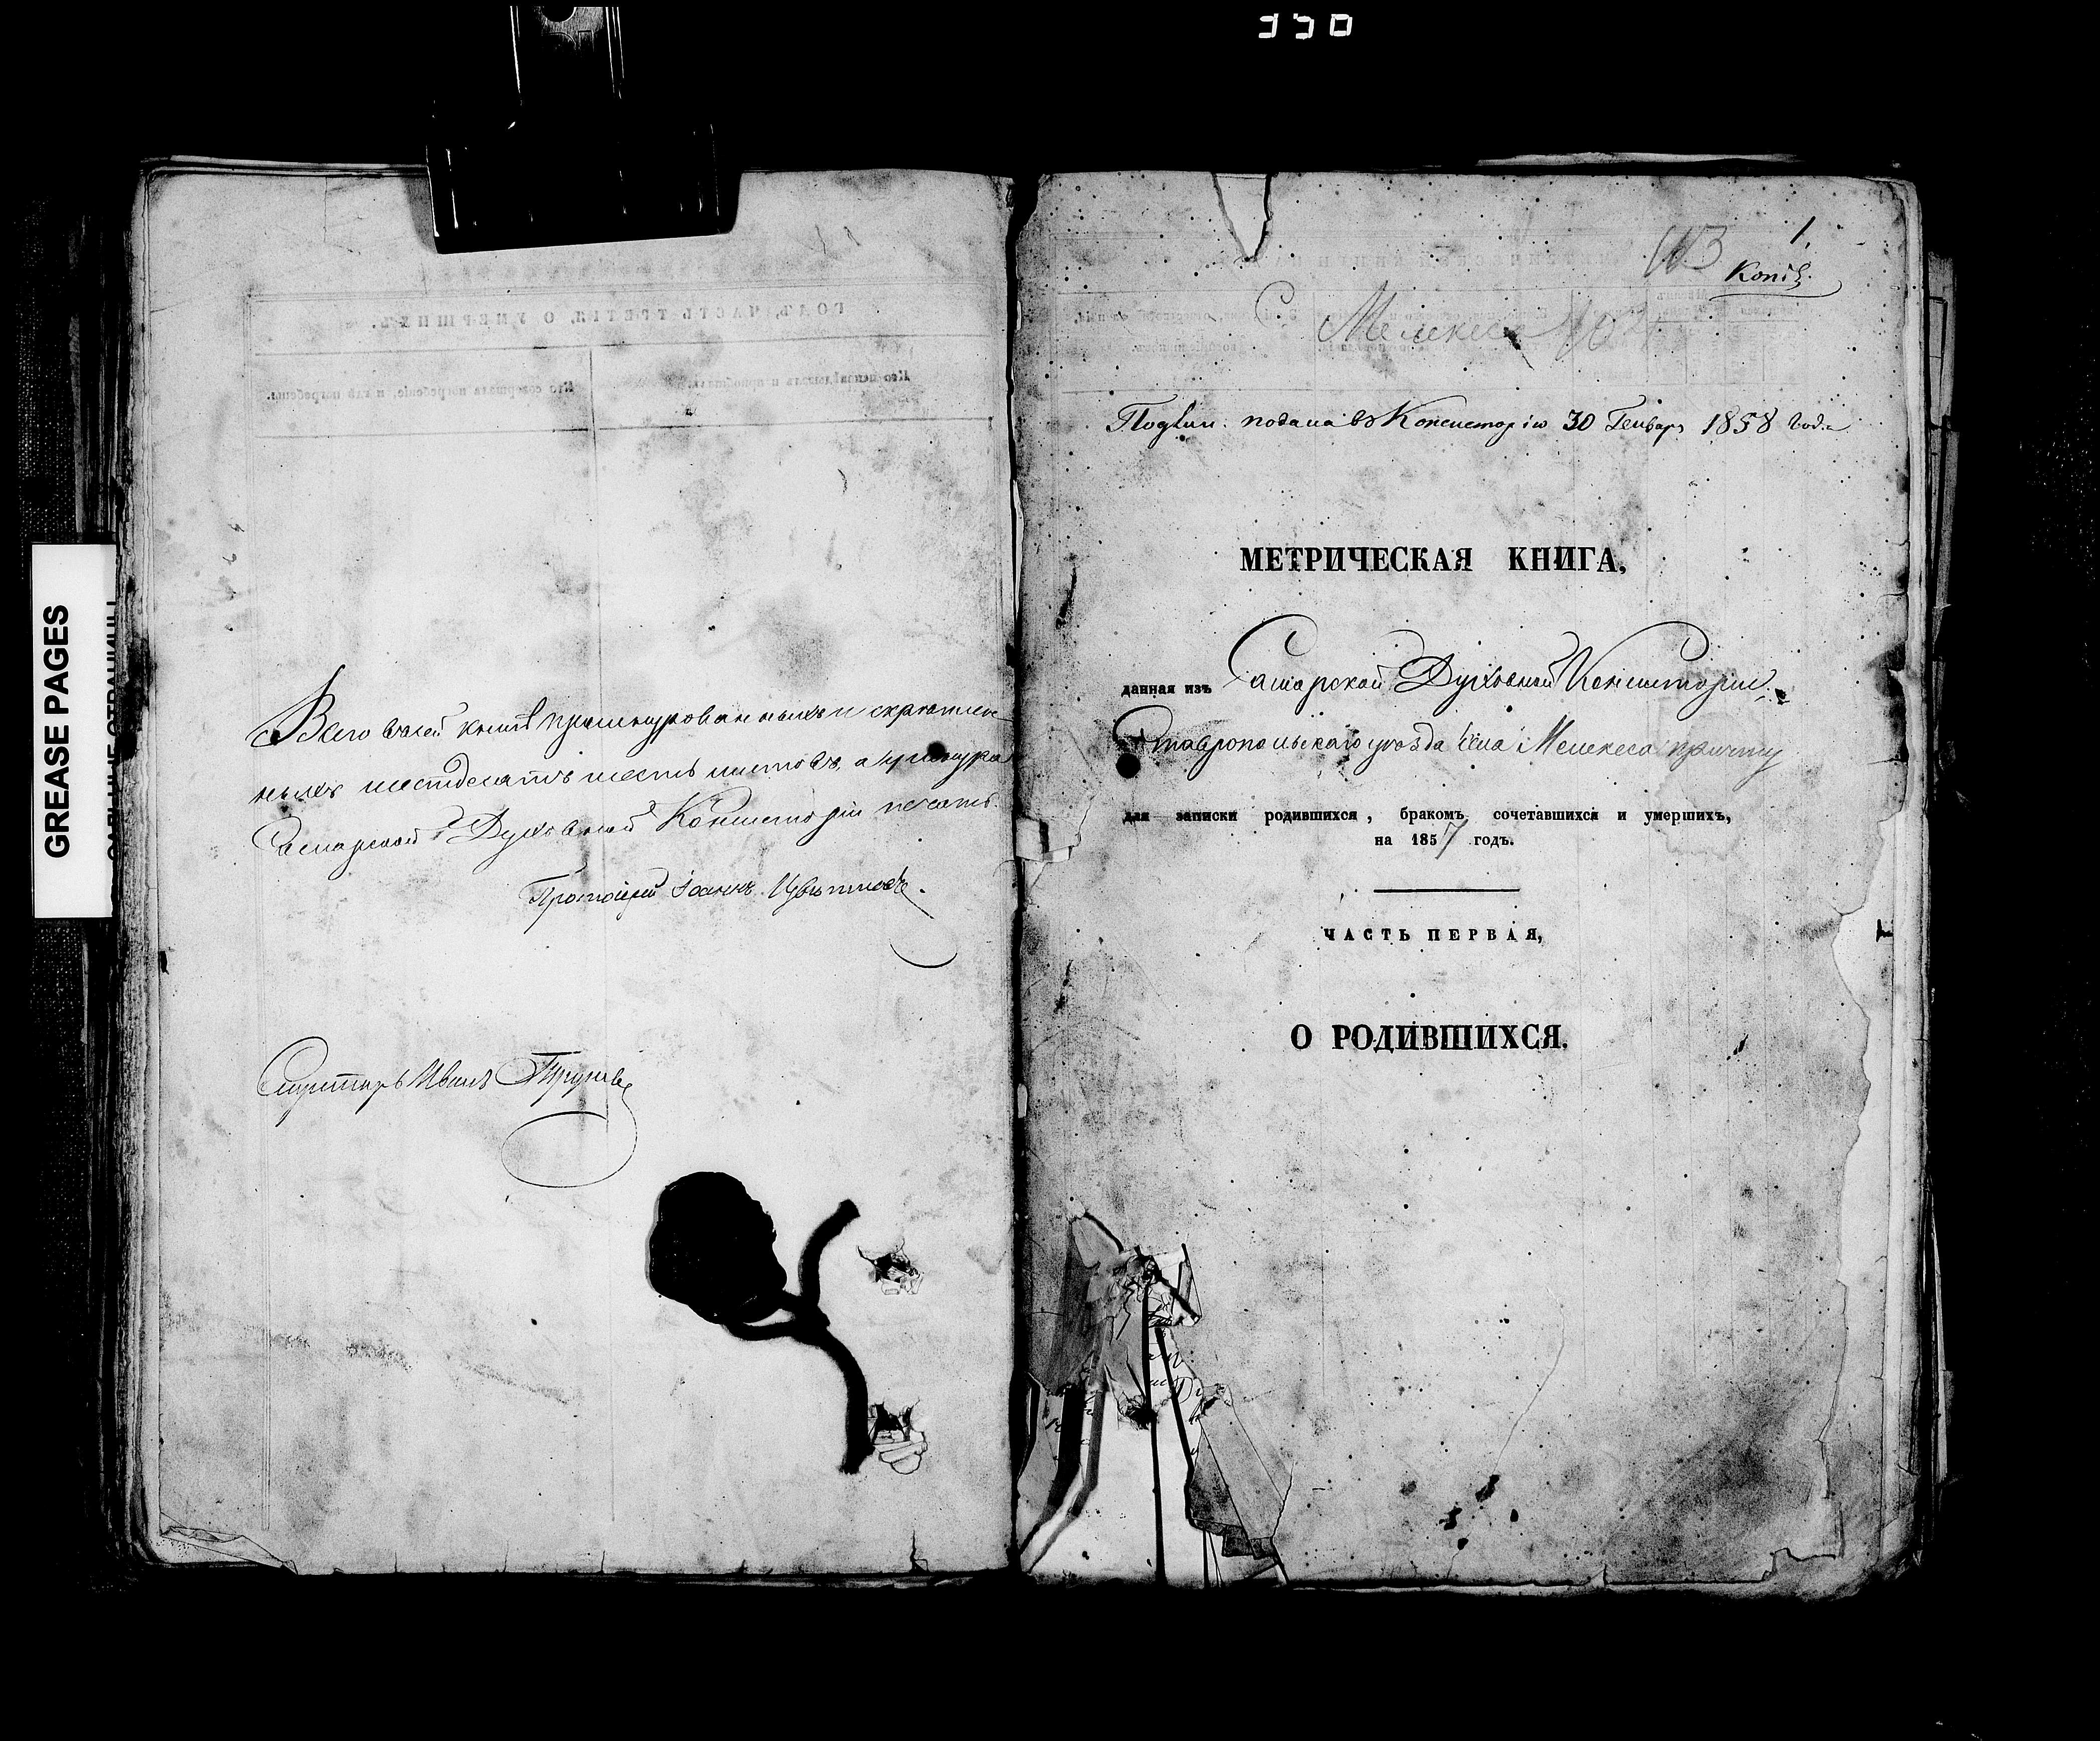 350
GREASE PAGES
ГОДЪ, ЧАСТЬ ТРЕТІЯ, О УМЕРШИХЪ.
Кто исповѣдывалъ и пріобщалъ.
Кто совершалъ погребеніе, и гдѣ погребены.
Всего въ сей книгѣ прошнурованныхъ и скрѣплен-
ныхъ шестьдесятъ шесть листовъ, а у шнура
Самарской Духовной Консисторіи печать.
Протоіерей Іоаннъ Цвѣтковъ.
Секретарь Иванъ
1.
103
Копія.
С Мелекеса
Подлин. подана въ Консисторію 30 Генваря 1858 года
МЕТРИЧЕСКАЯ КНИГА,
данная изъ Самарской Духовной Консисторіи
Ставропольскаго уѣзда села Мелекеса причту
для записки родившихся, бракомъ сочетавшихся и умершихъ,
на 1857 годъ.
ЧАСТЬ ПЕРВАЯ,
О РОДИВШИХСЯ.